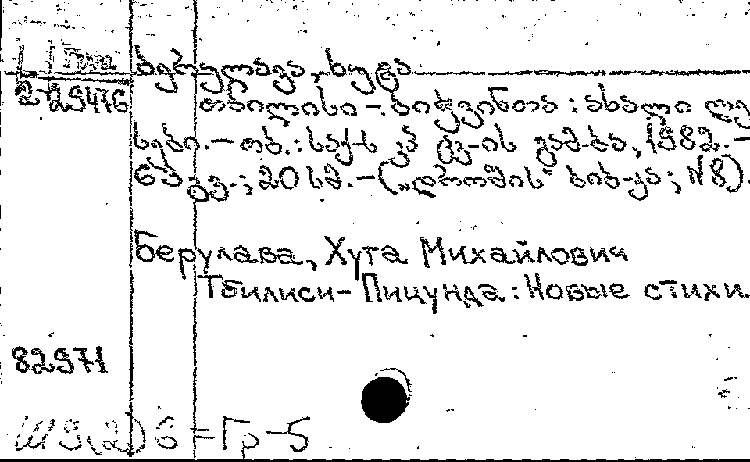 ბერულავა, ხუტა
2-29476 თბილისი - ბიჭვინთა : ახალი ლე
ხები.– თბ.: საქ-ს კპ ცკ-ის გამ-ბა, 1982.–
63 გვ.; 20 სმ.–(„დროშის“ ბიბ-კა; N8).
Берулава, Хута Михайлович
Тбилиси– Пицунда : Новые стихи.
82971
Ш 9(2) 6 =Гр -5